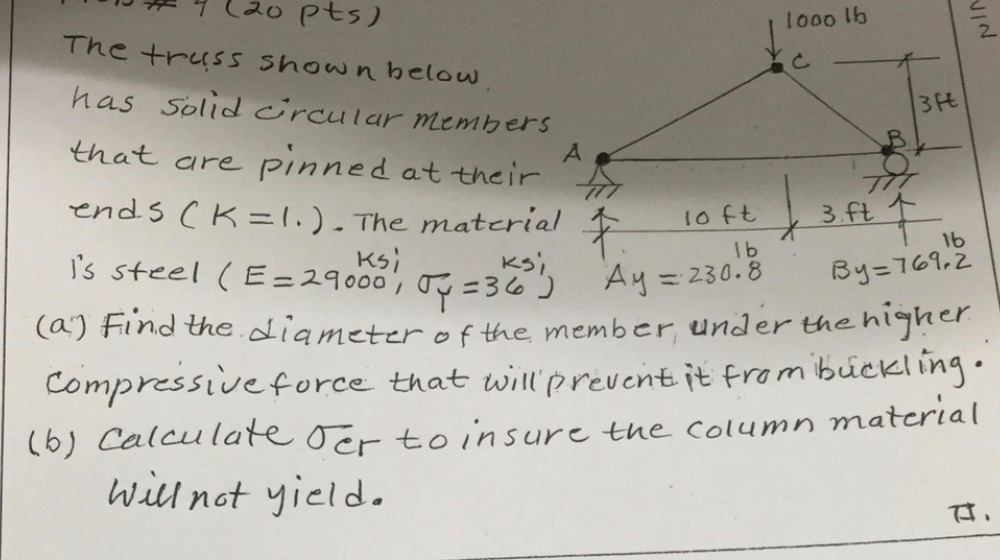 # 4 (20 pts)
The truss shown below
has solid circular members
that are pinned at their
ends (K=1.). The material
is steel (E=29000 ksi, σy=36 ksi)
(a) Find the diameter of the member, under the higher
compressive force that will prevent it from buckling.
(b) Calculate σcr to insure the column material
Will not yield.
1000 lb
C
3ft
A
B
10 ft
3.ft
Ay = 230.8 lb
By=769.2 lb
2